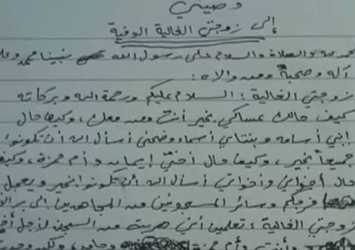 وصيتي
إلى زوجتي الغالية الوفية
الحمد لله والصلاة والسلام على رسول الله نبينا محمد وعلى
آله وصحبه ومن والاه:
زوجتي الغالية: السلام عليكم ورحمة الله وبركاته
كيف حالك عساكي بخير أنت ومن معك، وكيف حال
إبني أسامة وبنتاي أسماء وضحى أسأل الله أن تكونوا
جميعاً بخير، وكيف حال أختي إيمان وأم حمزة، وكيف
حال إخواني وأخواتي أسأل الله أن تكونوا بخير ويعجل
فرجكم وسائر المسجونين من المجاهدين
زوجتي الغالية: تعلمين أنني هربت من السجن لأجل